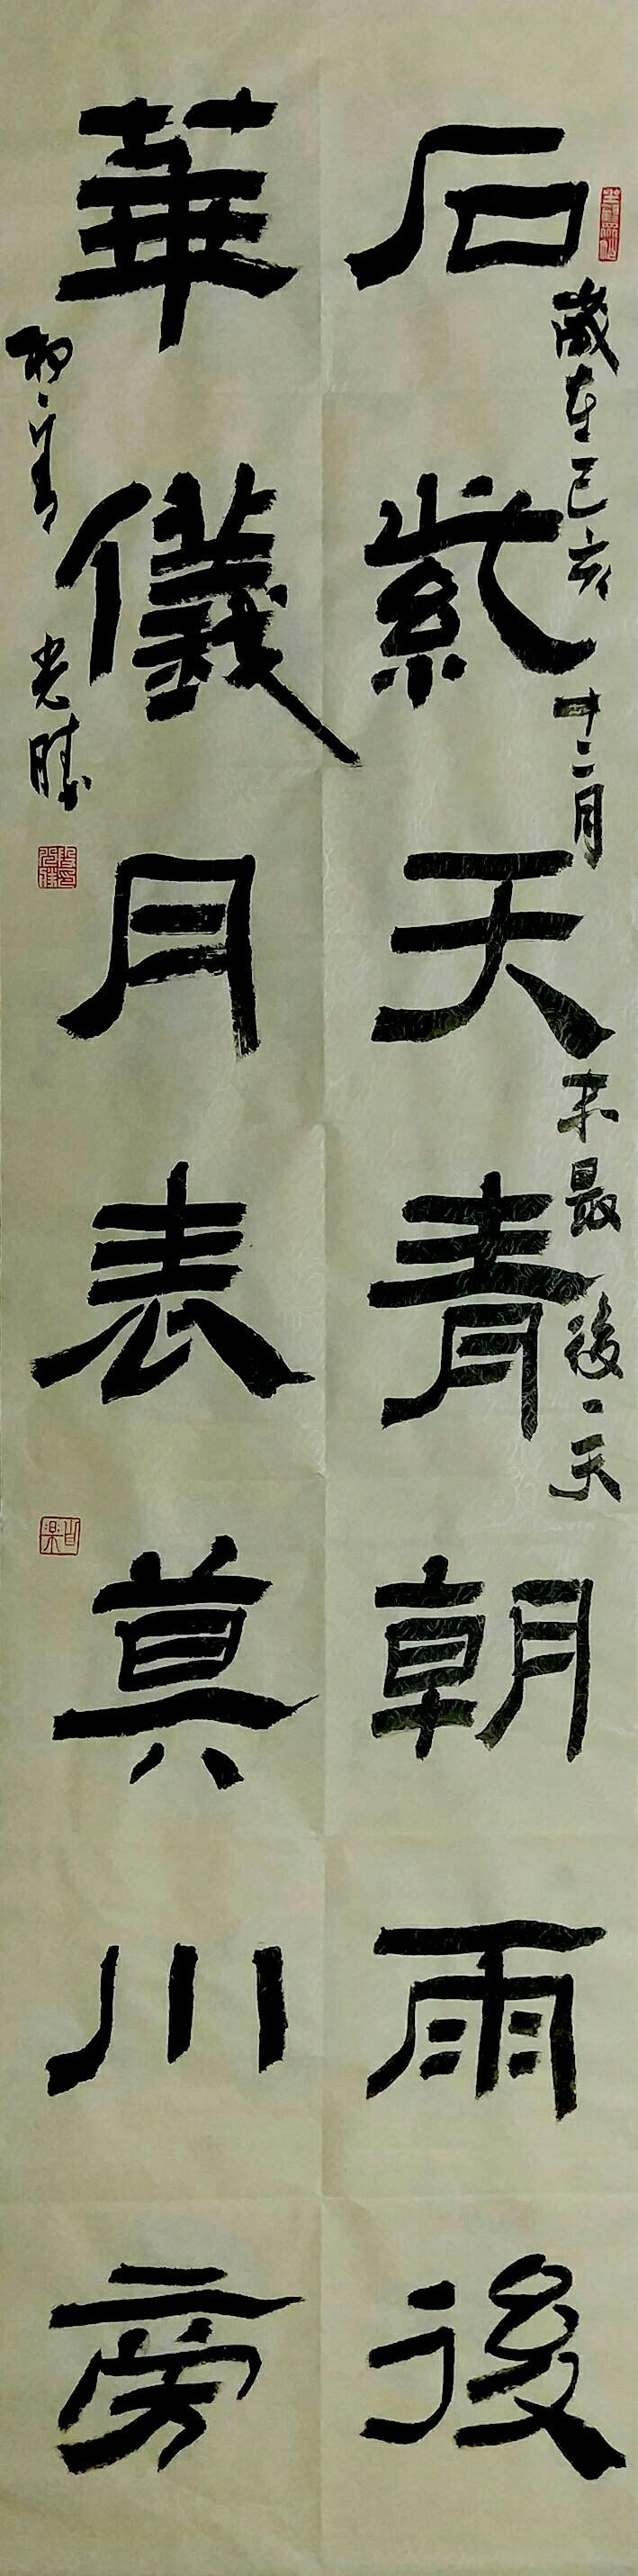 石紫天青朝雨後
歲在己亥十二月末最後一天
華儀月表莫川旁
光晴